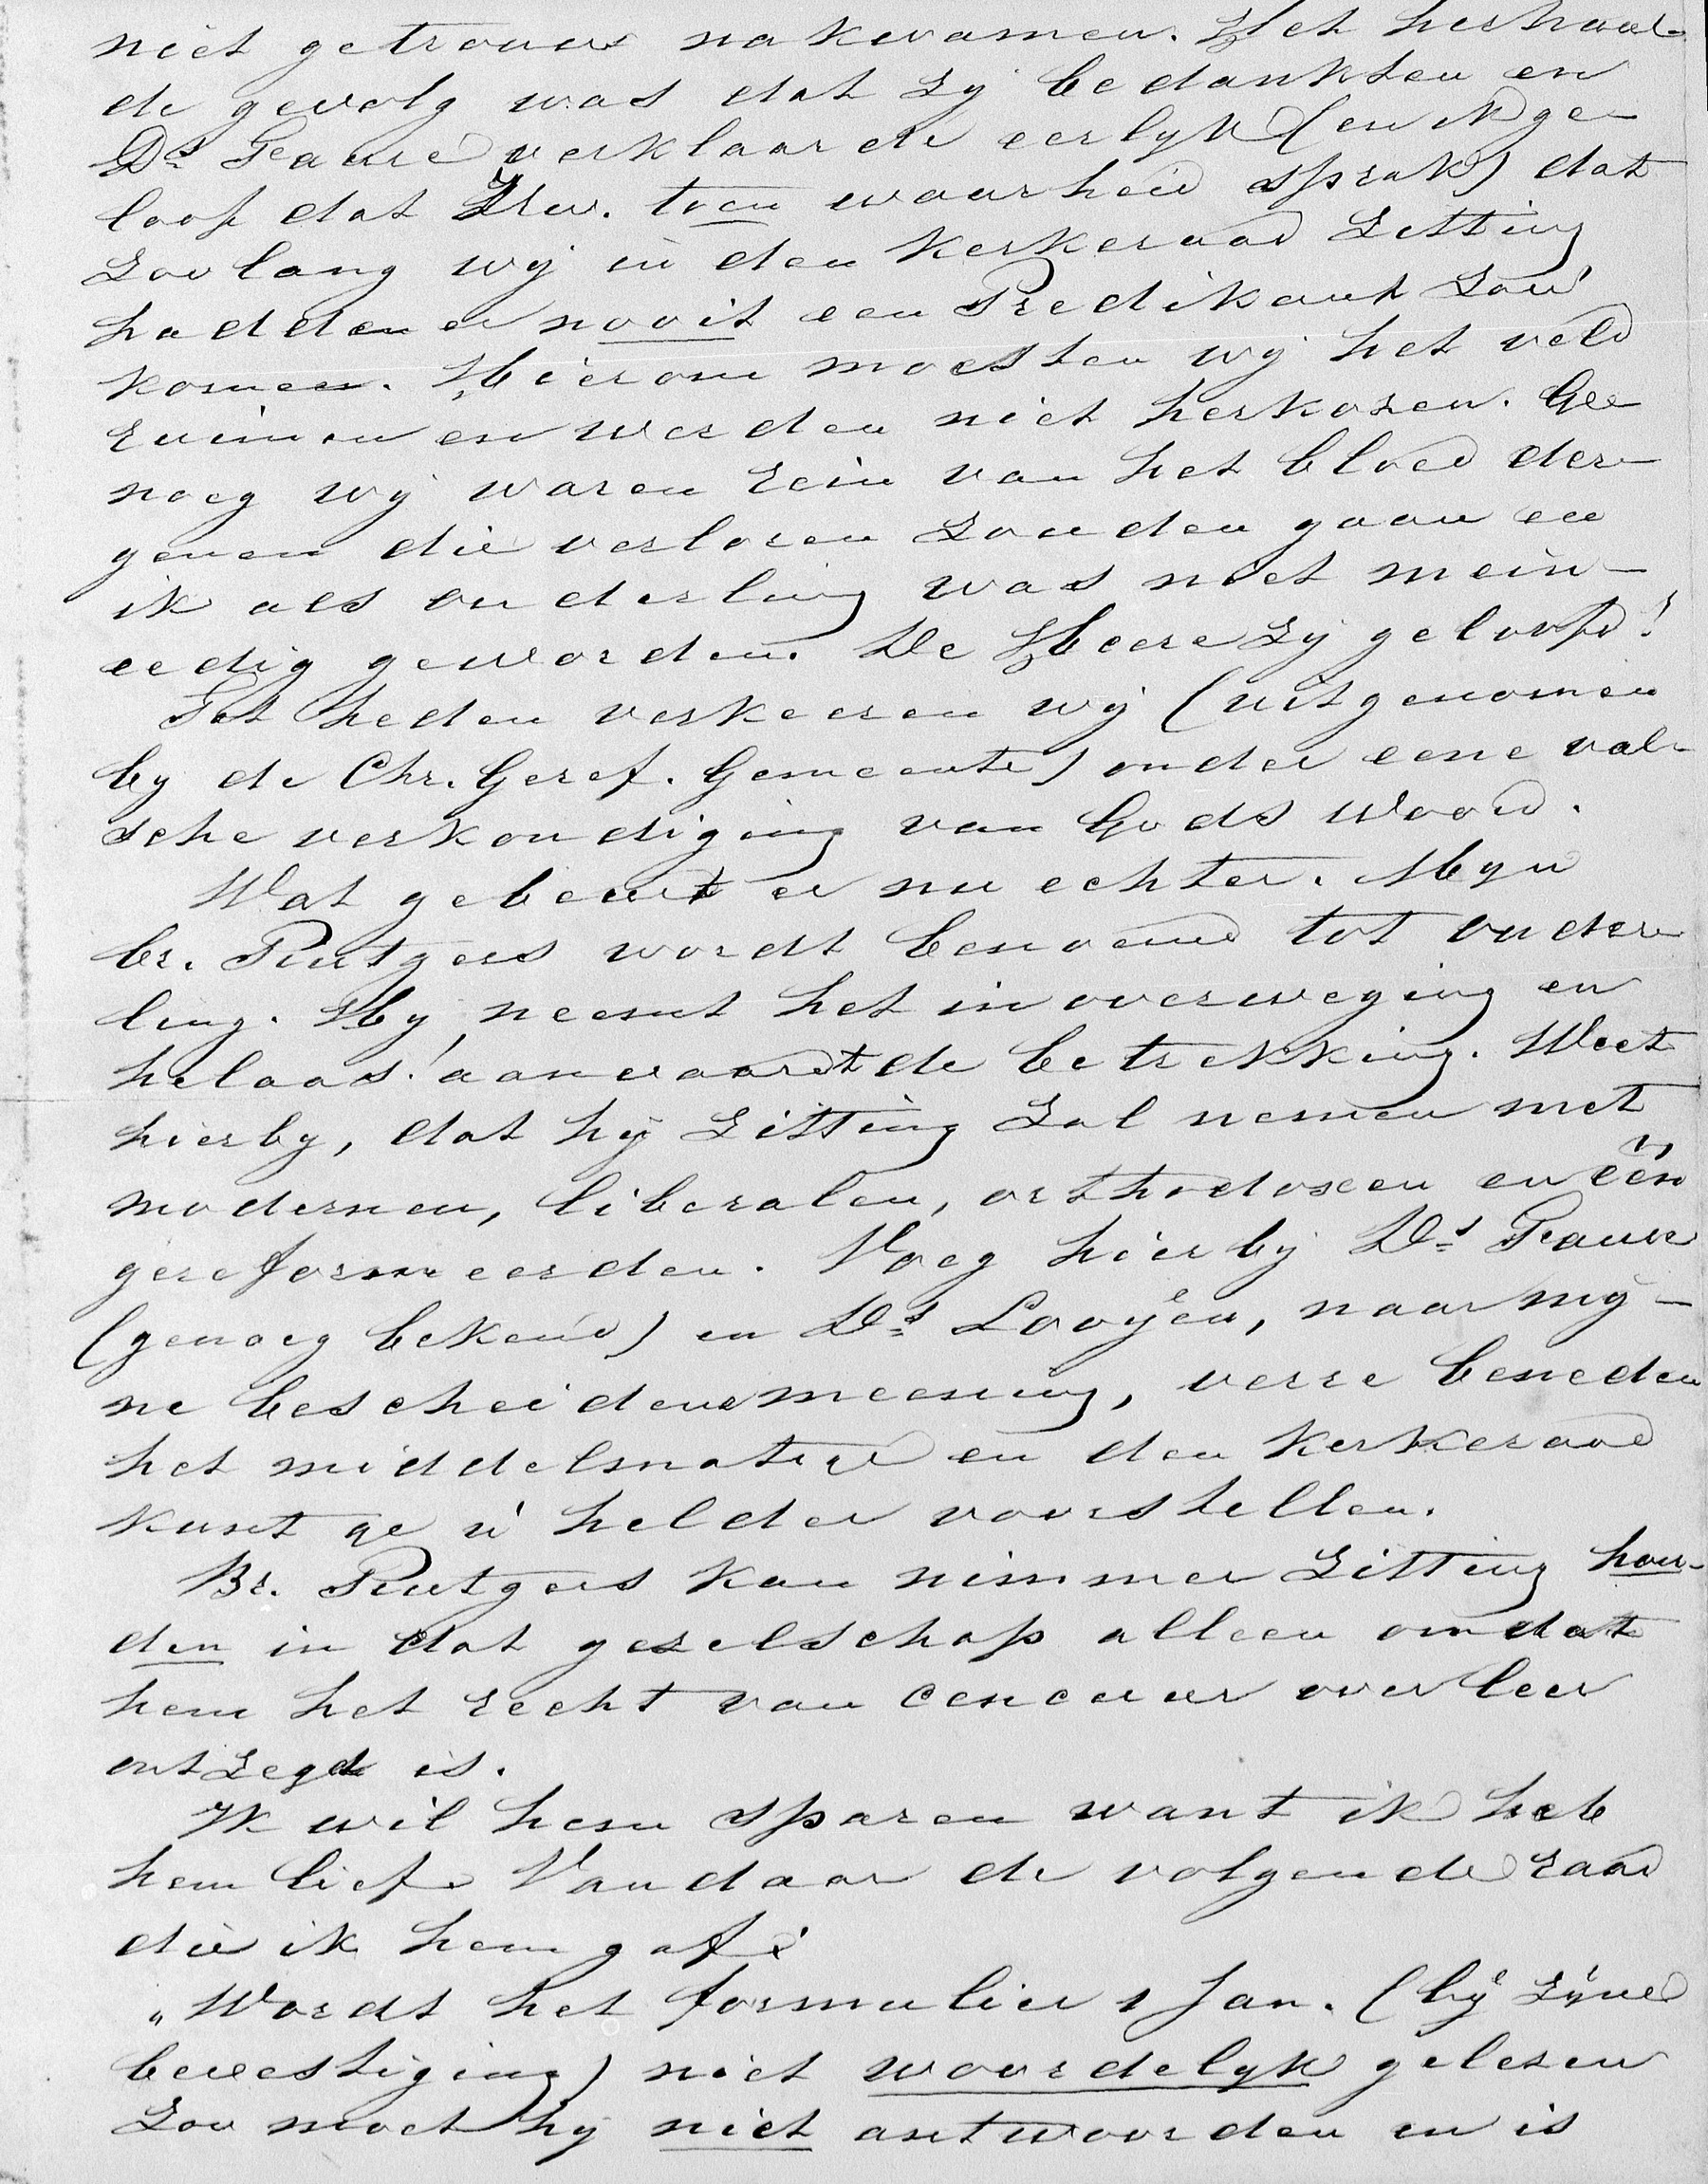 niet getrouw nakwamen. Het herhaal-
de gevolg was dat zy bedankten en
Ds verklaarde eerlyk (en ik ge-
loof dat ZEw. toen waarheid sprak) dat
zoolang wij in den Kerkeraad Zitting
hadden er nooit een Predikant zou
komen. Hierom moesten wij het veld
ruimen en werden niet herkozen. Ge-
noeg wij waren rein van het bloed der-
genen die verloren zouden gaan en
ik als ouderling was niet mein-
eedig geworden. De Heere zij geloofd!
Tot heden verkeeren wij (uitgenomen
by de Chr. Geref. Gemeente) onder eene val-
sche verkondiging van Gods Woord.
Wat gebeurt er nu echter. Myn
br. Rutgers wordt benoemd tot ouder-
ling. Hy neemt het in overweging en
helaas! aanvaardt de betrekking. Weet
hierby, dat hij Zitting zal nemen met
modernen, liberalen, orthodoxen en één
gereformeerden. Voeg hierbij Ds
(genoeg bekend) en Ds Looyen, naar mij-
ne bescheidene meening, verre beneden
het middelmatige en den Kerkeraad
kunt ge u helder voorstellen.
Br. Rutgers kan nimmer Zitting hou-
den in dat gezelschap alleen omdat
hem het recht van censuur over leer
ontzegd is.
Ik wil hem sparen want ik heb
hem lief. Vandaar de volgende raad
die ik hem gaf:
„Wordt het formulier 1 Jan. (bij zijne
bevestiging) niet woordelyk gelezen
zoo moet hij niet antwoorden en is